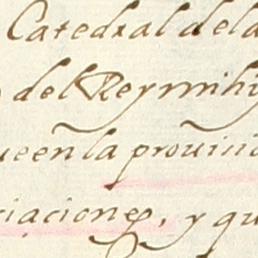 Catedral dela
del Rey mi hi
ue en la provinc
iaciones, y qu